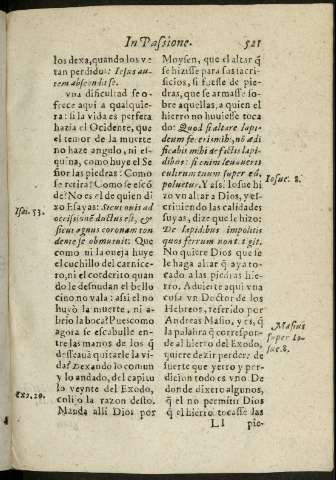 In Passione. 521
los dexa, quando los ve
tan perdidos: Iesus au-
tem abscondit se.
vna dificultad se o-
frece aqui a qualquie-
ra: si la vida es perfeta
hazia el Ocidente, que
el temor de la muerte
no haze angulo, ni es-
quina, como huye el Se
ñor las piedras? Como
se retira? Como se escõ
de? No es el de quien di
xo Esayas: Sicut ouis ad
occisionẽ ductus est, &
sicut agnus coram ton
dente se obmutuit: Que
como ni la oueja huye
el cuchillo del carnice-
ro, ni el corderito quan
do le desnudan el bello
cino no vala: assi el no
huyò la muerte, ni a-
brio la boca? Pues como
agora se escabulle en-
tre las manos de los q̃
desseauã quitarle la vi-
da? Dexando lo comun
y lo andado, del capitu
lo veynte del Exodo,
colijo la razon desto.
Manda alli Dios por
Isai. 53.
Exo. 20.
Moysen, que el altar q̃
se hiziesse para sus sacri-
ficios, si fuesse de pie-
dras, que se armasse so-
bre aquellas, a quien el
hierro no huuiesse toca
do: Quod si altare lapi-
deum feceris mihi, nõ ædi
ficabis mihi de sectis lapi-
dibus: si enim leuaueris
cultrum tuum super eũ,
poluetur. Y assi Iosue hi
zo vn altar a Dios, y es-
criuiendo las calidades
suyas, dize que le hizo:
De lapidibus impolitis
quos ferrum non tetigit.
No quiere Dios que le
le haga altar q̃ aya to-
cado a las piedras hie-
rro. Aduierte aqui vna
cosa vn Doctor de los
Hebreos, referido por
Andreas Masio, y es, q̃
la palabra q̃ correspon-
de al hierro del Exodo,
quiere dezir perder: de
suerte que yerro y per-
dicion todo es vno. De
donde dixero algunos,
q̃ el no permitir Dios
q̃ el hierro tocasse las
Iosue. 8.
Masius
super Io-
sue. 8.
Ll pie-